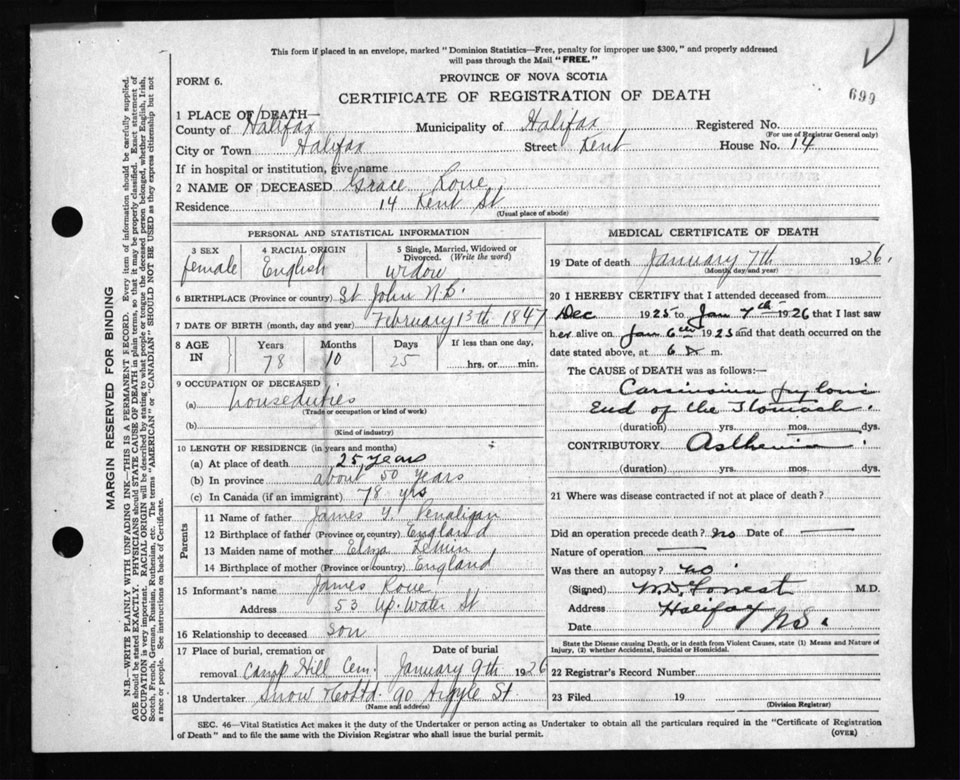 This form if placed in an envelope, marked "Dominion Statistics—Free, penalty for improper use $300," and properly addressed
will pass through the Mail "FREE."
FORM 6.
PROVINCE OF NOVA SCOTIA
699
CERTIFICATE OF REGISTRATION OF DEATH
1 PLACE OF DEATH—
County of Halifax Municipality of Halifax Registered No.
(For use of Registrar General only)
City or Town Halifax Street Kent House No. 14
If in hospital or institution, give name
2 NAME OF DECEASED Grace Roue
Residence 14 Kent St
(Usual place of abode)
PERSONAL AND STATISTICAL INFORMATION
3 SEX 4 RACIAL ORIGIN 5 Single, Married, Widowed or
Divorced. (Write the word)
female English widow
6 BIRTHPLACE (Province or country) St John N.B.
7 DATE OF BIRTH (month, day and year) February 13th 1847
8 AGE IN Years Months Days If less than one day,
78 10 25 hrs. or min.
9 OCCUPATION OF DECEASED
(a) houseduties
(Trade or occupation or kind of work)
(b)
(Kind of industry)
10 LENGTH OF RESIDENCE (in years and months)
(a) At place of death 25 years
(b) In province about 50 years
(c) In Canada (if an immigrant) 78 yrs
Parents
11 Name of father James Y.
12 Birthplace of father (Province or country) England
13 Maiden name of mother Eliza
14 Birthplace of mother (Province or country) England
15 Informant's name James Roue
Address 53 Up. Water St
16 Relationship to deceased son
17 Place of burial, cremation or Date of burial
removal Camp Hill Cem. January 9th 1926
18 Undertaker Snow & Co Ltd. 90 Argyle St
(Name and address)
MEDICAL CERTIFICATE OF DEATH
19 Date of death January 7th 1926.
(Month, day and year)
20 I HEREBY CERTIFY that I attended deceased from
Dec 1925 to Jan 7th 1926 that I last saw
her alive on Jan 6th 1925 and that death occurred on the
date stated above, at 6 m.
The CAUSE of DEATH was as follows:—
Carcinoma pyloric
End of the Stomach.
(duration) yrs. mos. dys.
CONTRIBUTORY Asthenia
(duration) yrs. mos. dys.
21 Where was disease contracted if not at place of death?
Did an operation precede death? no Date of —
Nature of operation —
Was there an autopsy? no
(Signed) W.D. Forrest M.D.
Address Halifax
Date N.S.
State the Disease causing Death, or in death from Violent Causes, state (1) Means and Nature of
Injury, (2) whether Accidental, Suicidal or Homicidal.
22 Registrar's Record Number
23 Filed 19
(Division Registrar)
SEC. 46—Vital Statistics Act makes it the duty of the Undertaker or person acting as Undertaker to obtain all the particulars required in the "Certificate of Registration
of Death" and to file the same with the Division Registrar who shall issue the burial permit.
(OVER)
MARGIN RESERVED FOR BINDING
N.B.—WRITE PLAINLY WITH UNFADING INK—THIS IS A PERMANENT RECORD. Every item of information should be carefully supplied.
AGE should be stated EXACTLY. PHYSICIANS should STATE CAUSE OF DEATH in plain terms, so that it may be properly classified. Exact statement of
OCCUPATION is very important. RACIAL ORIGIN will be described by stating to what people or tongue the deceased person belonged, whether English, Irish,
Scotch, French, German, Russian, Ruthenian, etc. The terms "AMERICAN" or "CANADIAN" SHOULD NOT BE USED as they express citizenship but not
a race or people. See instructions on back of Certificate.